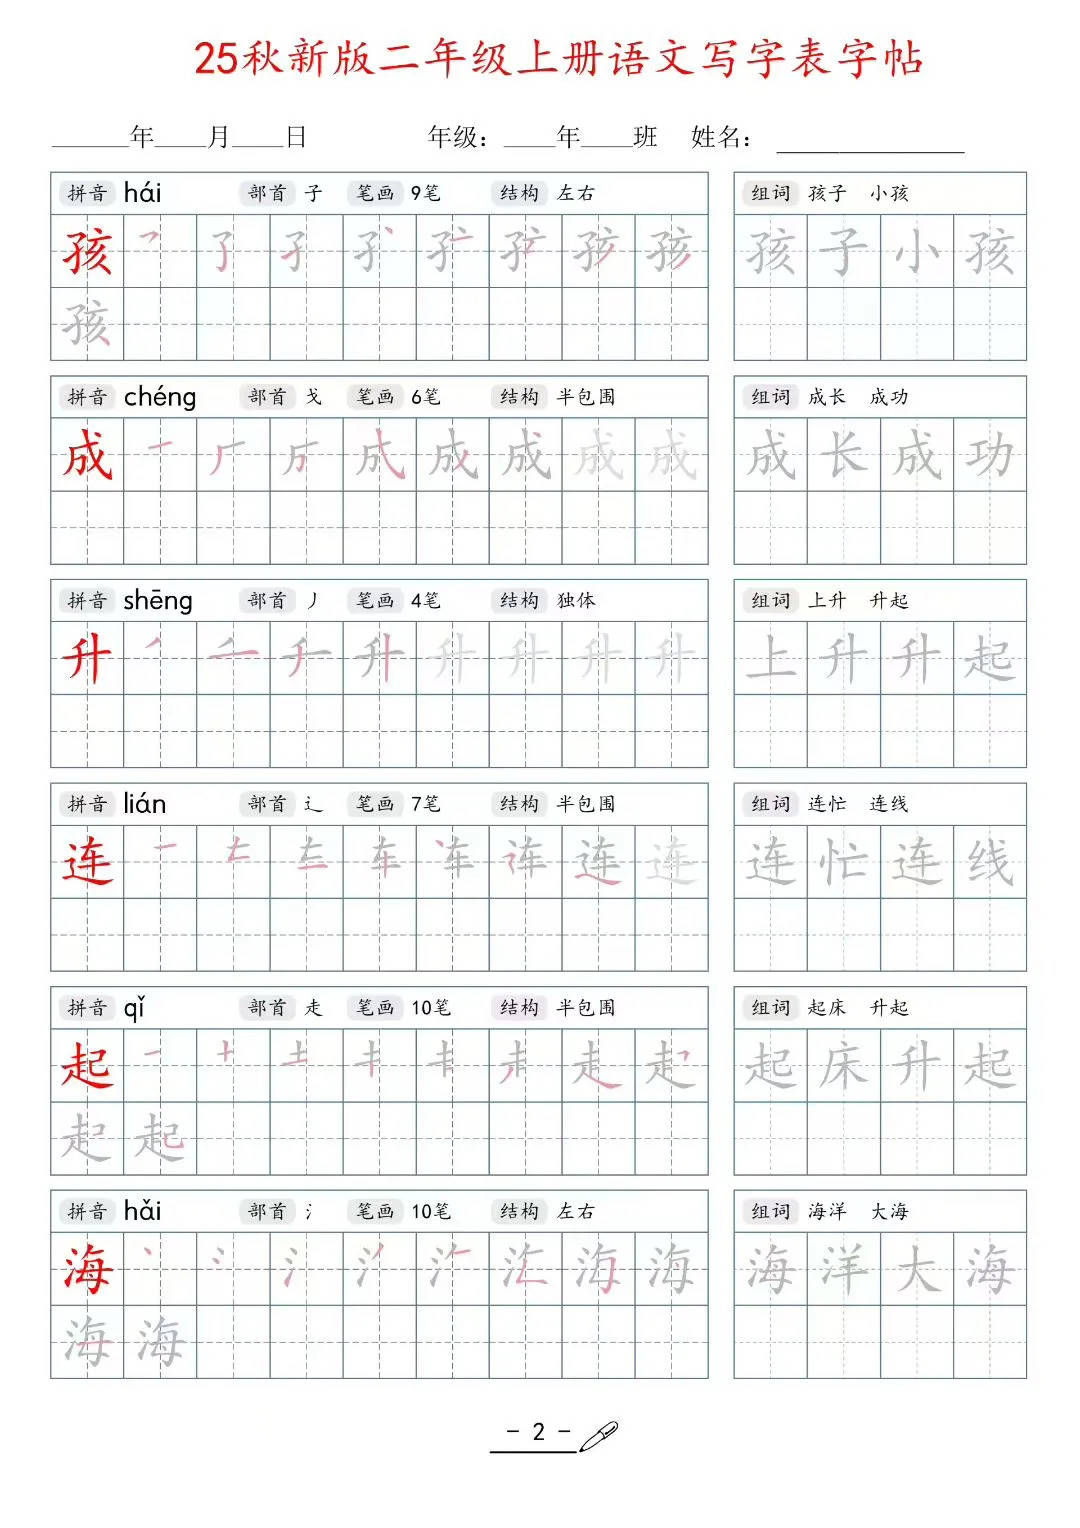 25秋新版二年级上册语文写字表字帖
____年____月____日 年级：____年____班 姓名：________
拼音 hái 部首 子 笔画 9笔 结构 左右 组词 孩子 小孩
孩 孩子小孩
孩
拼音 chéng 部首 戈 笔画 6笔 结构 半包围 组词 成长 成功
成 成 成 成 成 成长成功
拼音 shēng 部首 丿 笔画 4笔 结构 独体 组词 上升 升起
升 升 升 升 升 升 上升升起
拼音 lián 部首 辶 笔画 7笔 结构 半包围 组词 连忙 连线
连 连 连 连忙连线
拼音 qǐ 部首 走 笔画 10笔 结构 半包围 组词 起床 升起
起 起床升起
起 起
拼音 hǎi 部首 氵 笔画 10笔 结构 左右 组词 海洋 大海
海 海洋大海
海 海
- 2 -